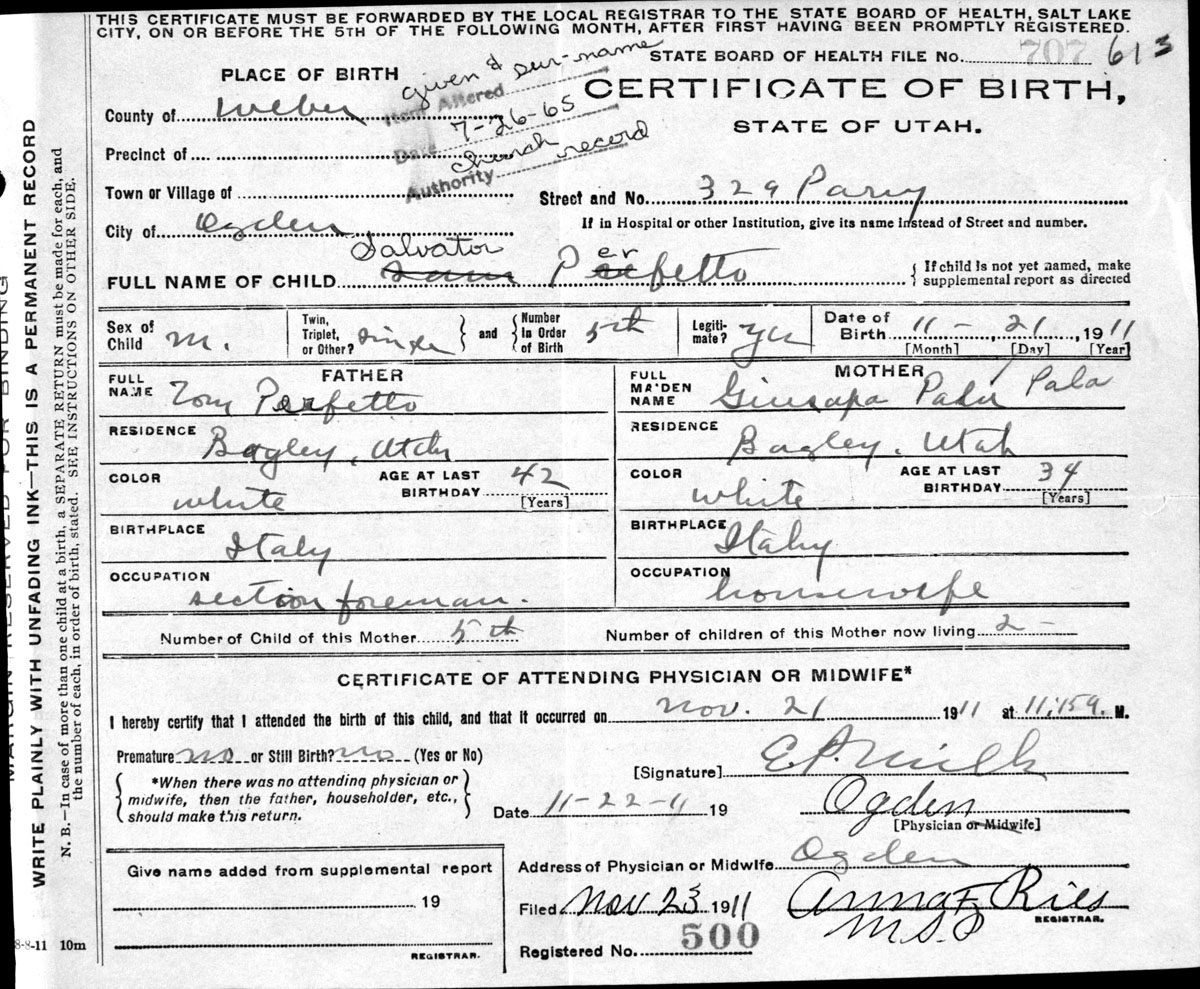 THIS CERTIFICATE MUST BE FORWARDED BY THE LOCAL REGISTRAR TO THE STATE BOARD OF HEALTH, SALT LAKE
CITY, ON OR BEFORE THE 5TH OF THE FOLLOWING MONTH, AFTER FIRST HAVING BEEN PROMPTLY REGISTERED.
STATE BOARD OF HEALTH FILE No. 707 613
PLACE OF BIRTH
given & sur-name
Item Altered
CERTIFICATE OF BIRTH,
County of Weber
Date 7-26-65
STATE OF UTAH.
Precinct of
church record
Authority
Town or Village of
Street and No. 329
City of Ogden
If in Hospital or other Institution, give its name instead of Street and number.
Salvator er
FULL NAME OF CHILD Sam Perfetto
If child is not yet named, make
supplemental report as directed
Sex of Child M.
Twin, Triplet, or Other? single
and
Number In Order of Birth 5th
Legiti-mate? yes
Date of Birth 11 - 21, 1911
[Month] [Day] [Year]
FATHER
FULL NAME Tom Perfetto
RESIDENCE Bagley, Utah
COLOR white
AGE AT LAST BIRTHDAY 42
[Years]
BIRTHPLACE Italy
OCCUPATION section foreman.
MOTHER
FULL MAIDEN NAME Pala
RESIDENCE Bagley, Utah
COLOR white
AGE AT LAST BIRTHDAY 34
[Years]
BIRTHPLACE Italy
OCCUPATION housewife
Number of Child of this Mother 5th
Number of children of this Mother now living 2-
CERTIFICATE OF ATTENDING PHYSICIAN OR MIDWIFE*
I hereby certify that I attended the birth of this child, and that it occurred on Nov. 21 1911 at 11:15 a. M.
Premature no or Still Birth? no (Yes or No)
*When there was no attending physician or
midwife, then the father, householder, etc.,
should make this return.
[Signature] E.P. Mills
Date 11-22-11 19
Ogden
[Physician or Midwife]
Give name added from supplemental report
19
REGISTRAR.
Address of Physician or Midwife Ogden
Filed Nov 23 1911
Anna F Ries
REGISTRAR.
Registered No. 500
8-8-11 10m
MARGIN RESERVED FOR BINDING
WRITE PLAINLY WITH UNFADING INK—THIS IS A PERMANENT RECORD
N. B.—In case of more than one child at a birth, a SEPARATE RETURN must be made for each, and
the number of each, in order of birth, stated. SEE INSTRUCTIONS ON OTHER SIDE.